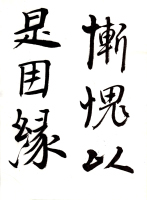 慚愧以
是因縁